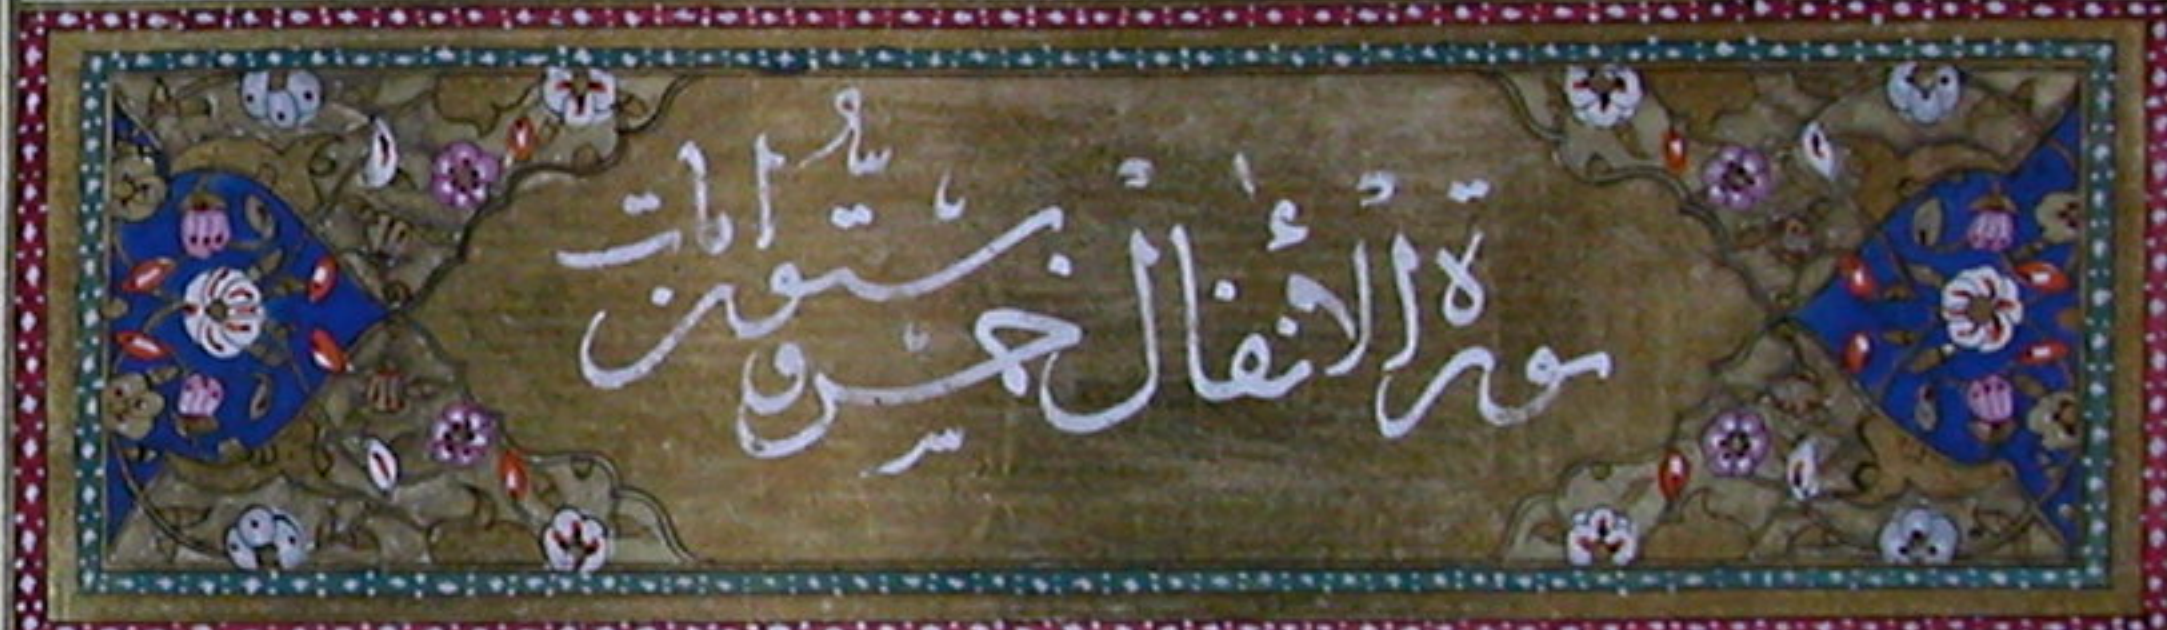 سورة الأنفال خمس و ستون آيات